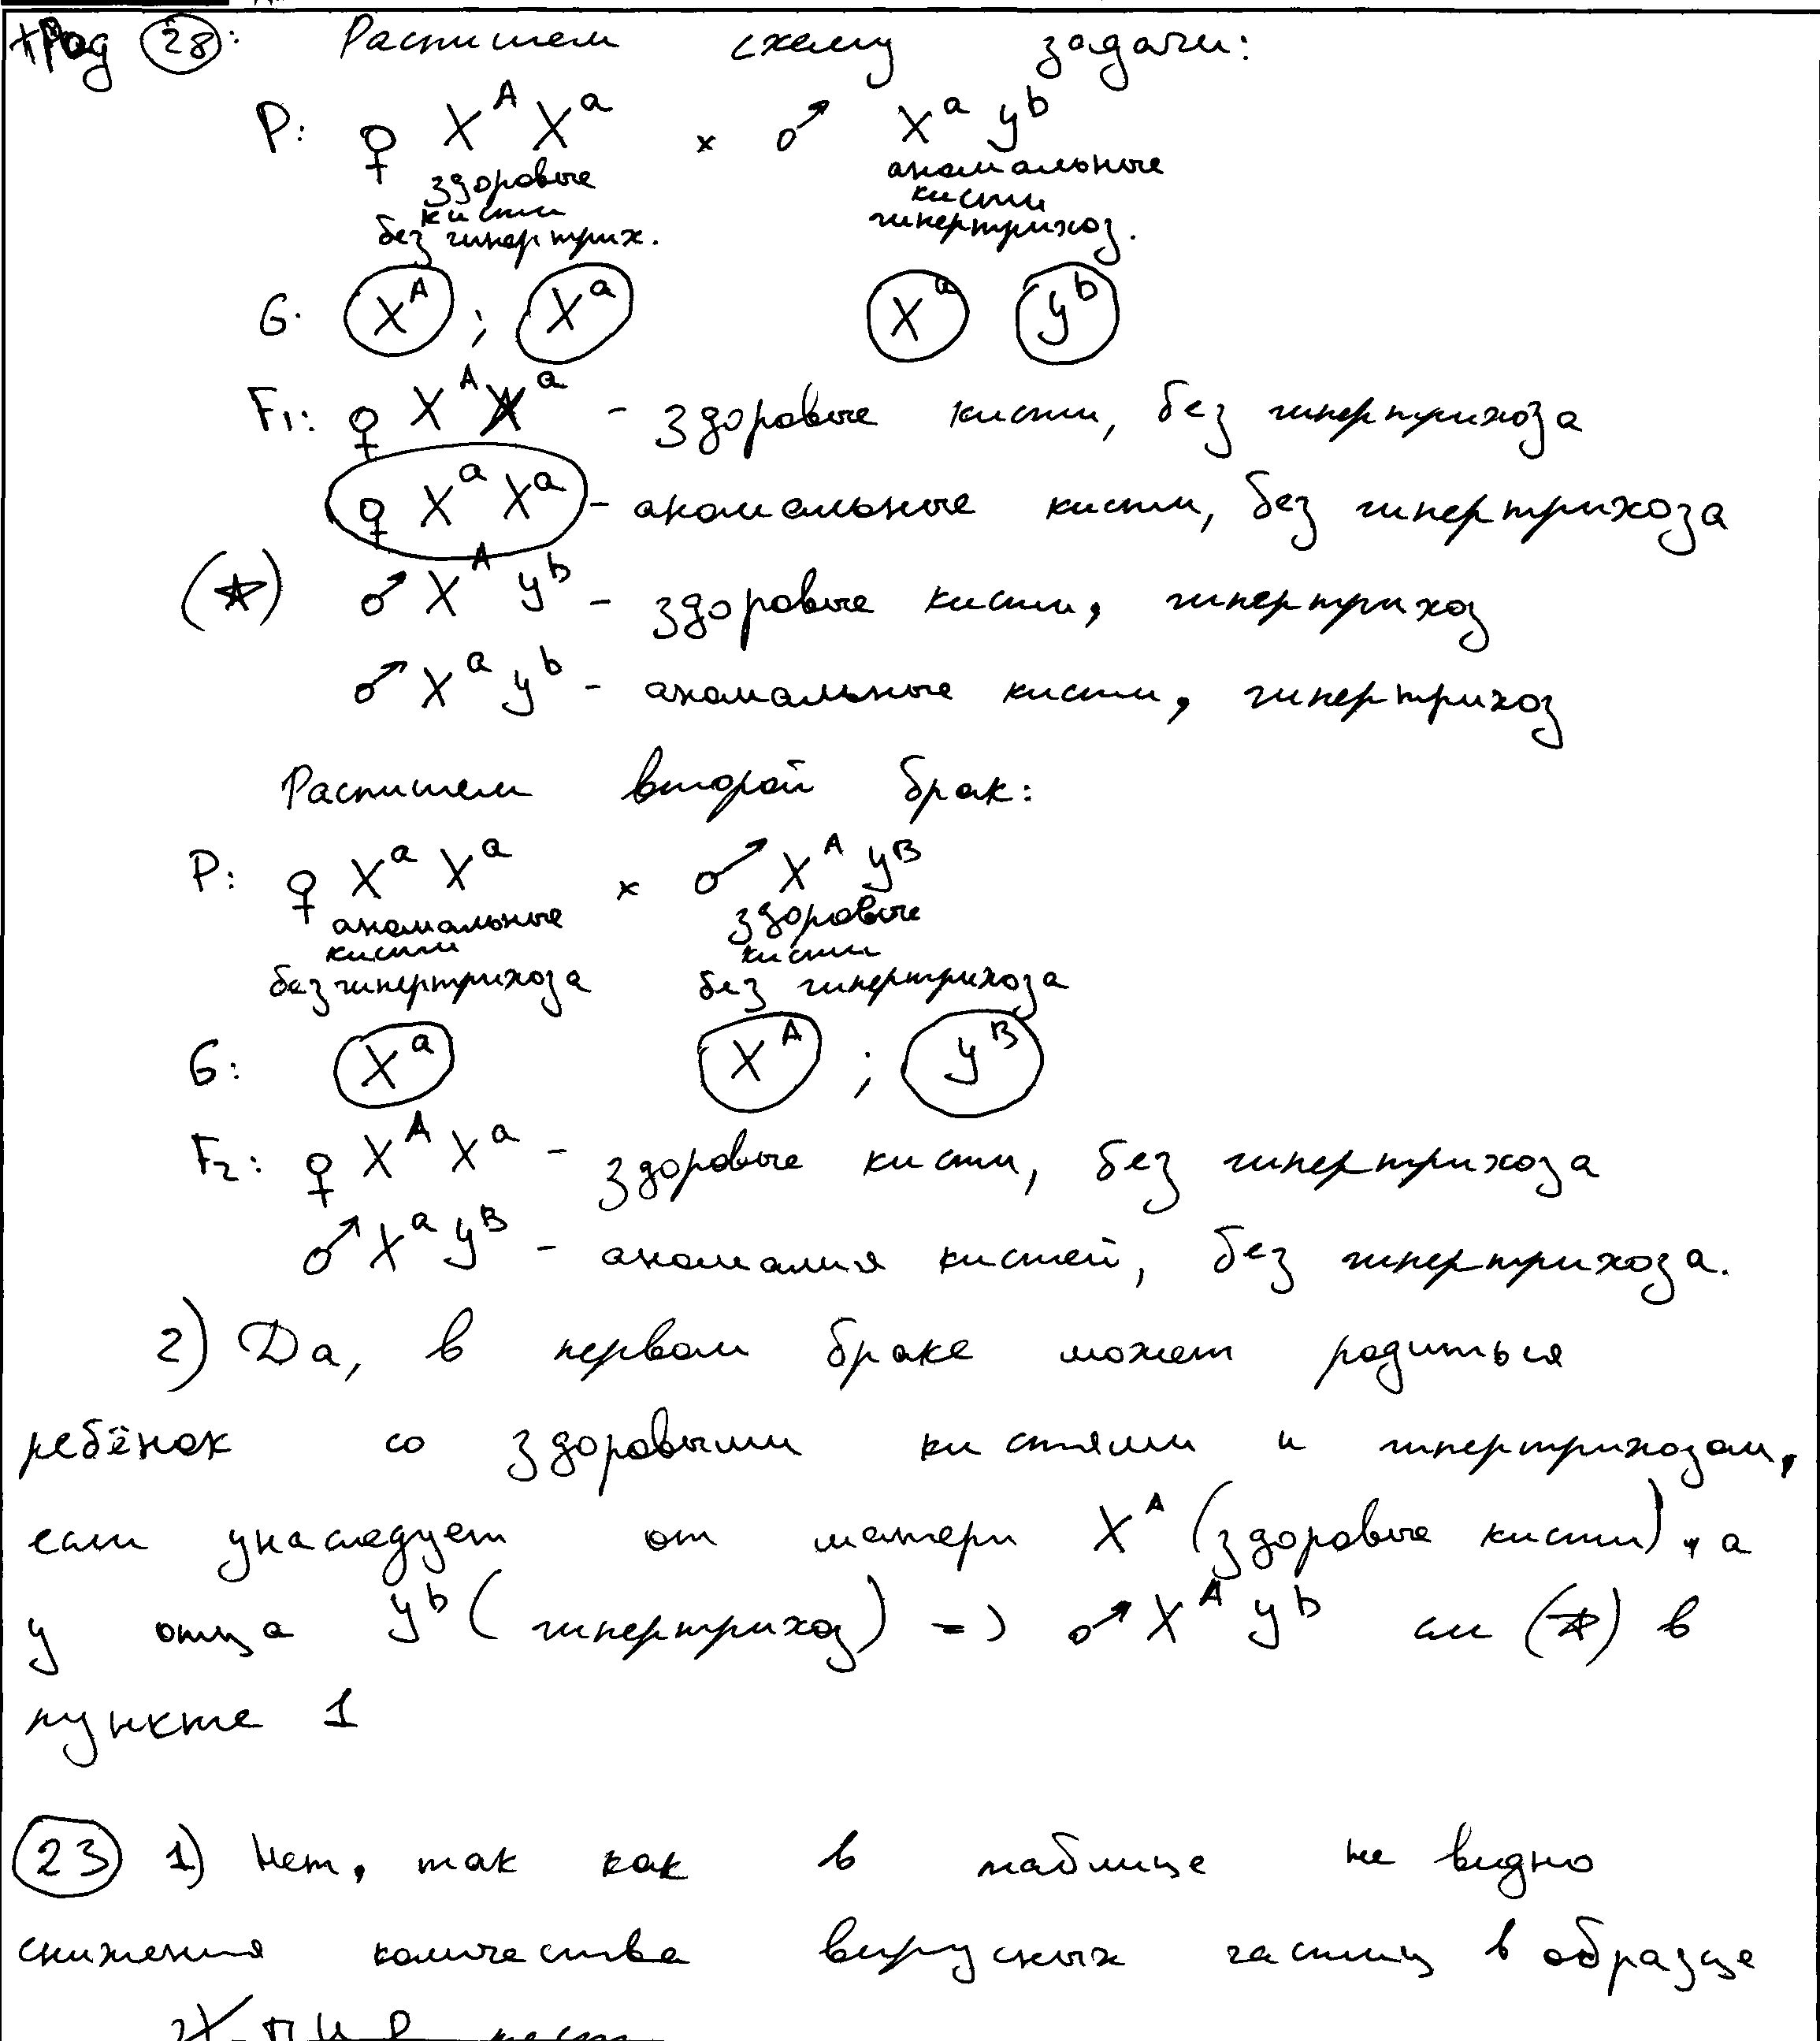 (28): Распишем схему задачи:
P: ♀ X^A X^a × ♂ X^a y^b
здоровые кисти без гипертрих. аномальные кисти гипертрихоз.
G. (X^A) ; (X^a) (X^a) (y^b)
F1: ♀ X^A X^a - здоровые кисти, без гипертрихоза
♀ X^a X^a - аномальные кисти, без гипертрихоза
(☆) ♂ X^A y^b - здоровые кисти, гипертрихоз
♂ X^a y^b - аномальные кисти, гипертрихоз
Распишем второй брак:
P: ♀ X^a X^a × ♂ X^A y^B
аномальные кисти без гипертрихоза здоровые кисти без гипертрихоза
G: (X^a) (X^A) ; (y^B)
F2: ♀ X^A X^a - здоровые кисти, без гипертрихоза
♂ X^a y^B - аномалия кистей, без гипертрихоза.
2) Да, в первом браке может родиться
ребёнок со здоровыми кистями и гипертрихозом,
если унаследует от матери X^A (здоровые кисти), а
у отца y^b (гипертрихоз) => ♂ X^A y^b см (☆) в
пункте 1
(23) 1) Нет, так как в таблице не видно
снижения количества вирусных частиц в образце